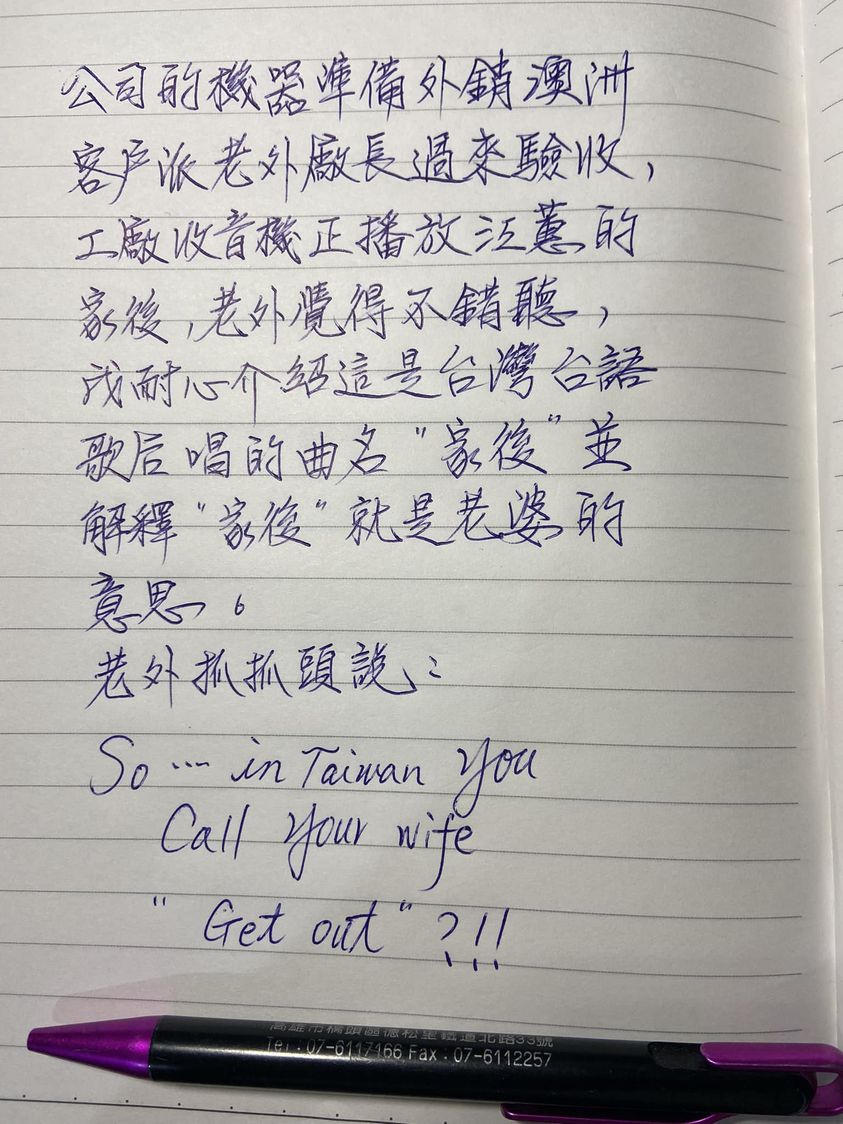 公司的機器準備外銷澳洲
客戶派老外廠長過來驗收,
工廠收音機正播放江蕙的
家後,老外覺得不錯聽,
我耐心介紹這是台灣台語
歌后唱的曲名"家後"並
解釋"家後"就是老婆的
意思。
老外抓抓頭說:
So ... in Taiwan you
Call your wife
"Get out"?!!
高雄市橋頭區德松里鐵道北路33號
Tel:07-6117166 Fax:07-6112257